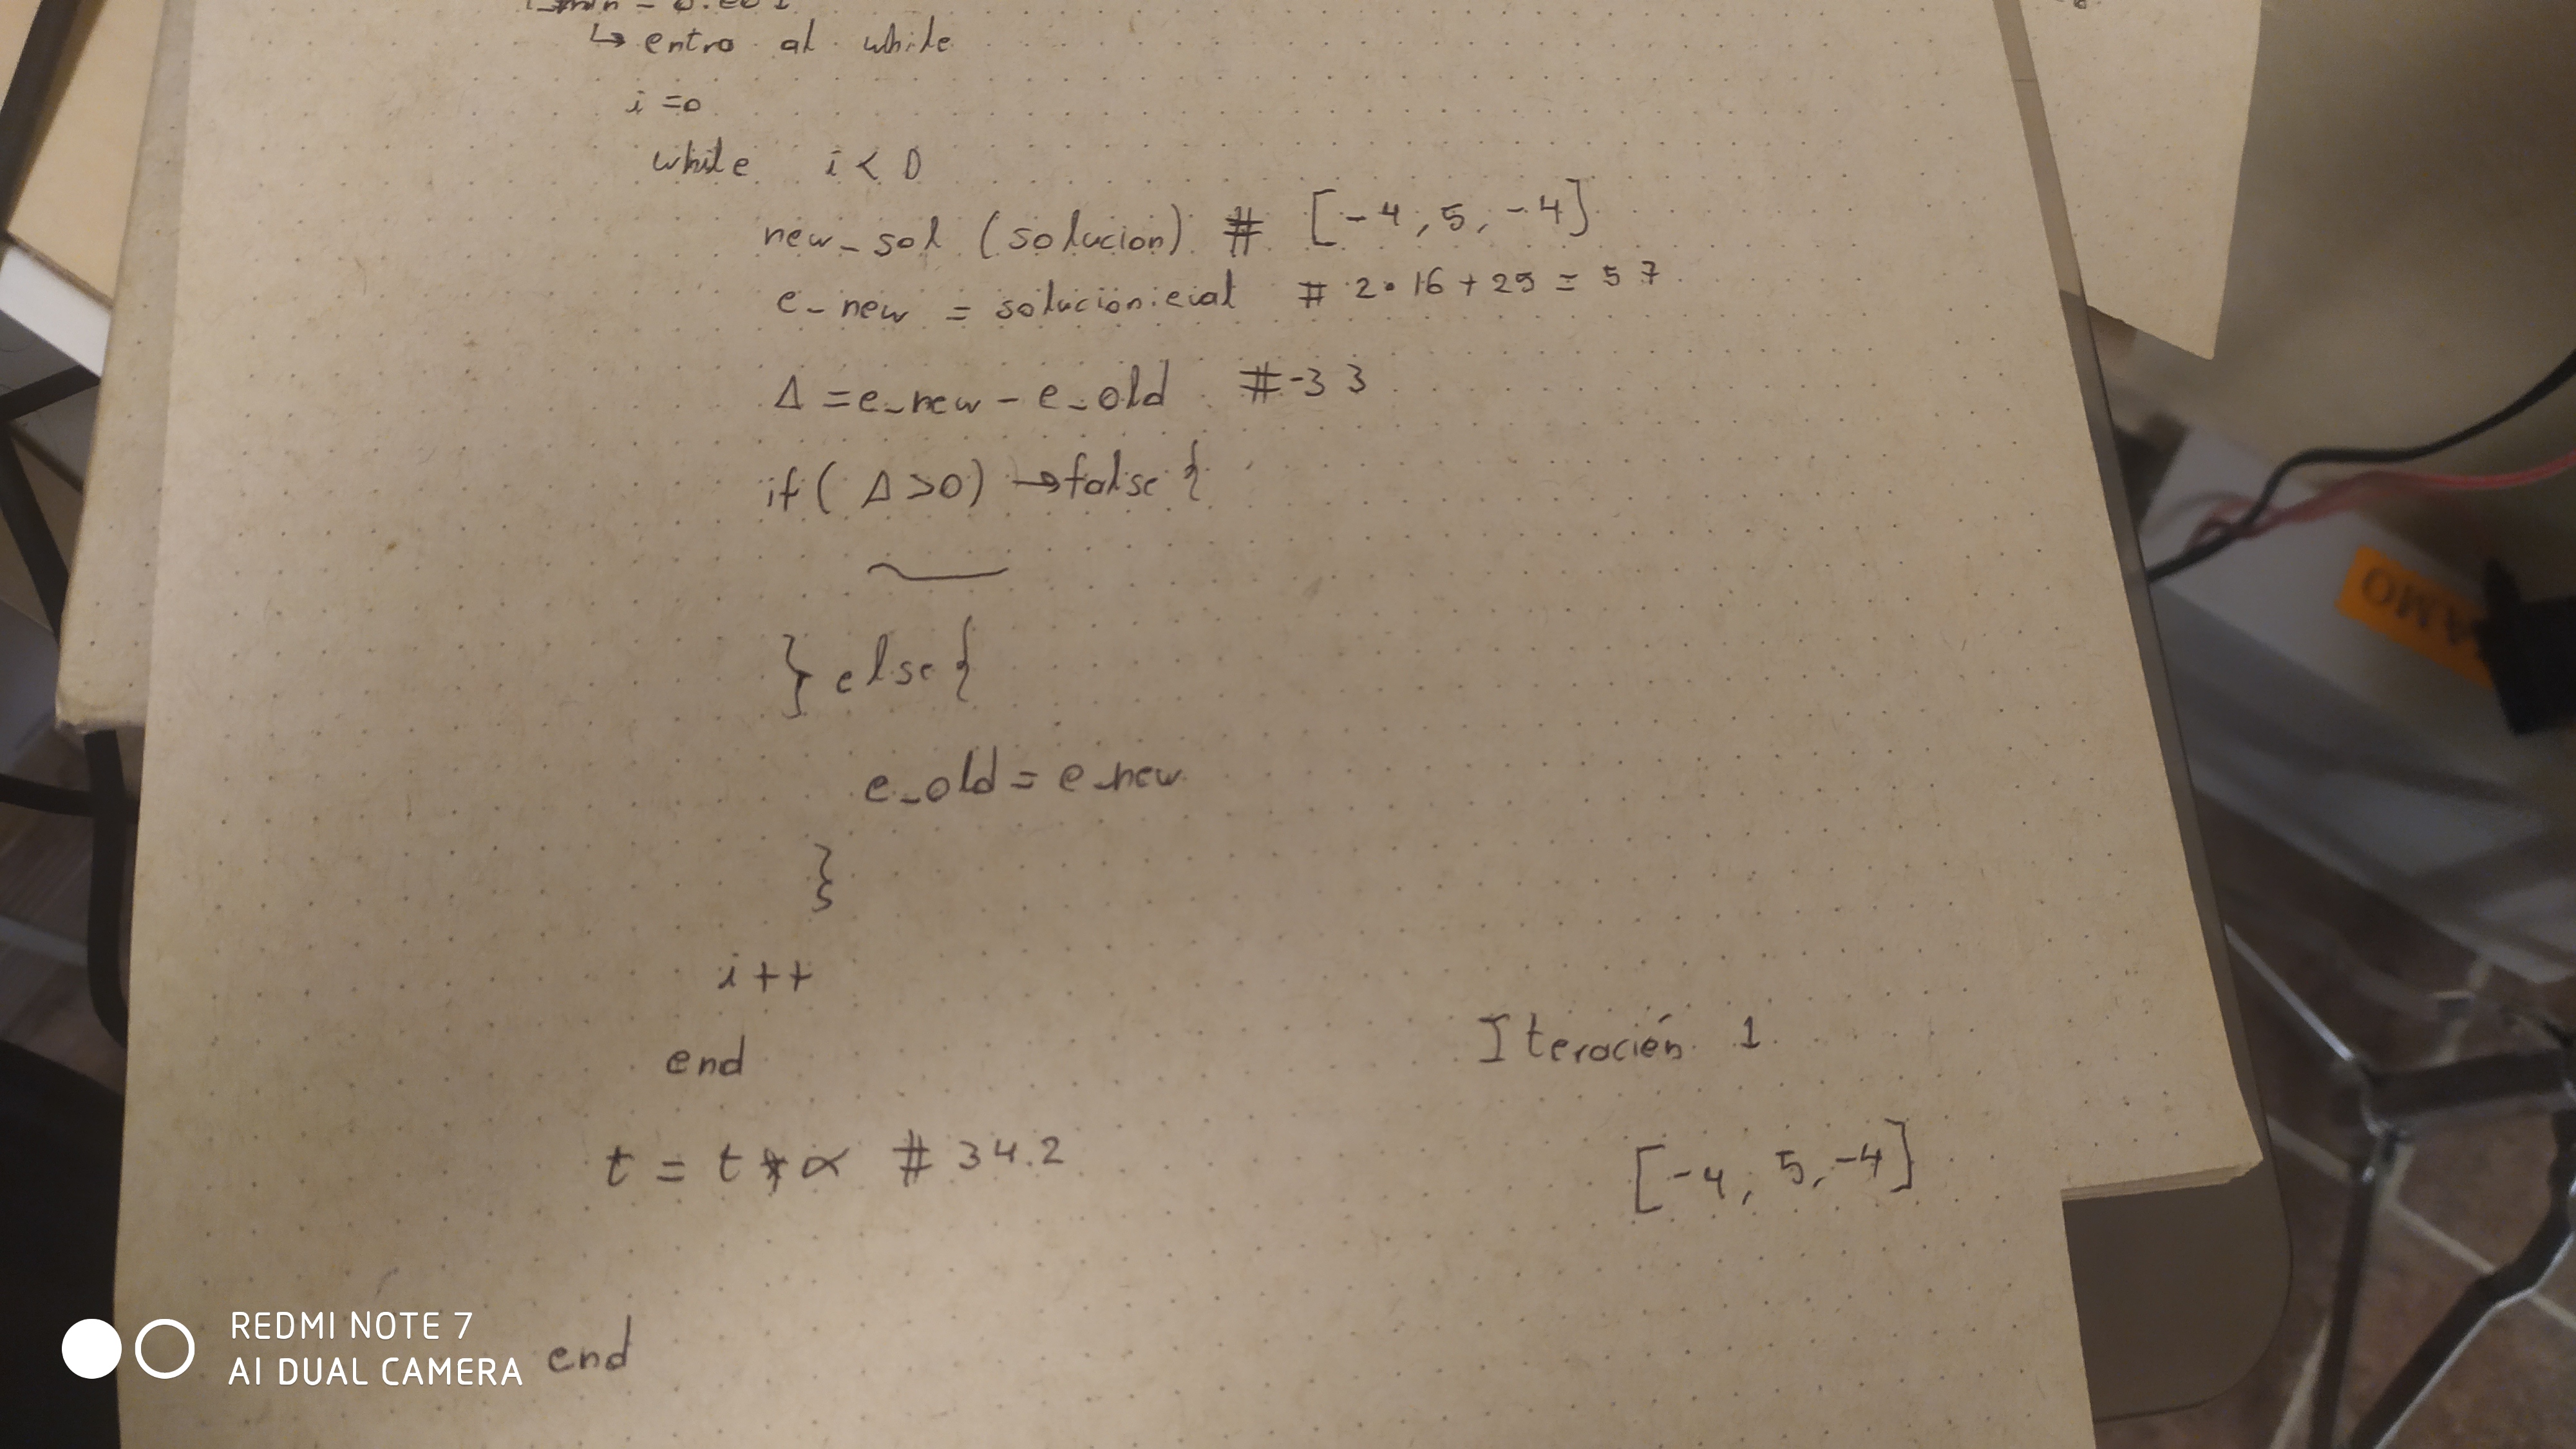 t_min = 0.001
↳ entro al while
i =0
while i < 0
new_sol (solucion) # [-4, 5, -4]
e_new = solucion.eval # 2•16 + 25 = 57
Δ =e_new - e_old #-33
if ( Δ >0) →false {
} else {
e_old = e_new
}
i++
end
Iteración 1
t = t * α # 34.2
[-4, 5, -4]
end
REDMI NOTE 7
AI DUAL CAMERA